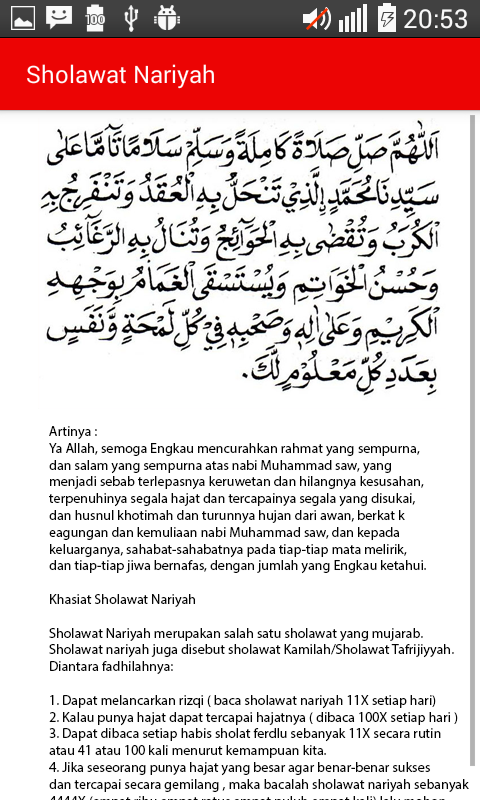 100
20:53
Sholawat Nariyah
اَللّٰهُمَّ صَلِّ صَلَاةً كَامِلَةً وَسَلِّمْ سَلَامًا تَآمًّا عَلٰى
سَيِّدِنَا مُحَمَّدِ الَّذِيْ تَنْحَلُّ بِهِ الْعُقَدُ وَتَنْفَرِجُ بِهِ
الْكُرَبُ وَتُقْضٰى بِهِ الْحَوَآئِجُ وَتُنَالُ بِهِ الرَّغَآئِبُ
وَحُسْنُ الْخَوَاتِمِ وَيُسْتَسْقَى الْغَمَامُ بِوَجْهِهِ
الْكَرِيْمِ وَعَلٰى اٰلِهٖ وَصَحْبِهٖ فِيْ كُلِّ لَمْحَةٍ وَّنَفَسٍ
بِعَدَدِ كُلِّ مَعْلُوْمٍ لَّكَ.
Artinya :
Ya Allah, semoga Engkau mencurahkan rahmat yang sempurna,
dan salam yang sempurna atas nabi Muhammad saw, yang
menjadi sebab terlepasnya keruwetan dan hilangnya kesusahan,
terpenuhinya segala hajat dan tercapainya segala yang disukai,
dan husnul khotimah dan turunnya hujan dari awan, berkat k
eagungan dan kemuliaan nabi Muhammad saw, dan kepada
keluarganya, sahabat-sahabatnya pada tiap-tiap mata melirik,
dan tiap-tiap jiwa bernafas, dengan jumlah yang Engkau ketahui.
Khasiat Sholawat Nariyah
Sholawat Nariyah merupakan salah satu sholawat yang mujarab.
Sholawat nariyah juga disebut sholawat Kamilah/Sholawat Tafrijiyyah.
Diantara fadhilahnya:
1. Dapat melancarkan rizqi ( baca sholawat nariyah 11X setiap hari)
2. Kalau punya hajat dapat tercapai hajatnya ( dibaca 100X setiap hari )
3. Dapat dibaca setiap habis sholat ferdlu sebanyak 11X secara rutin
atau 41 atau 100 kali menurut kemampuan kita.
4. Jika seseorang punya hajat yang besar agar benar-benar sukses
dan tercapai secara gemilang , maka bacalah sholawat nariyah sebanyak
4444X (empat ribu empat ratus empat puluh empat kali) lalu mohon